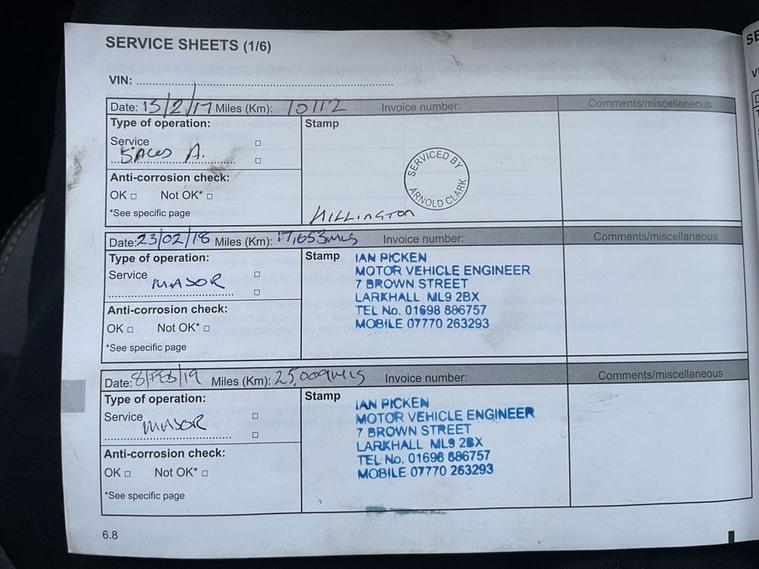 SERVICE SHEETS (1/6)
VIN:
Date: 15/2/17 Miles (Km): 10112 Invoice number: Comments/miscellaneous
Type of operation:
Stamp
Service
A.
SERVICED BY
ARNOLD CLARK
Anti-corrosion check:
OK □ Not OK* □
*See specific page
HILLINGTON
Date: 23/02/18 Miles (Km): 17,653 MLS Invoice number: Comments/miscellaneous
Type of operation:
Service
MAJOR
Anti-corrosion check:
OK □ Not OK* □
*See specific page
Stamp
IAN PICKEN
MOTOR VEHICLE ENGINEER
7 BROWN STREET
LARKHALL ML9 2BX
TEL No. 01698 886757
MOBILE 07770 263293
Date: 8/FEB/19 Miles (Km): 25,009 MLS Invoice number: Comments/miscellaneous
Type of operation:
Service
MAJOR
Anti-corrosion check:
OK □ Not OK* □
*See specific page
Stamp
IAN PICKEN
MOTOR VEHICLE ENGINEER
7 BROWN STREET
LARKHALL ML9 2BX
TEL No. 01698 886757
MOBILE 07770 263293
6.8